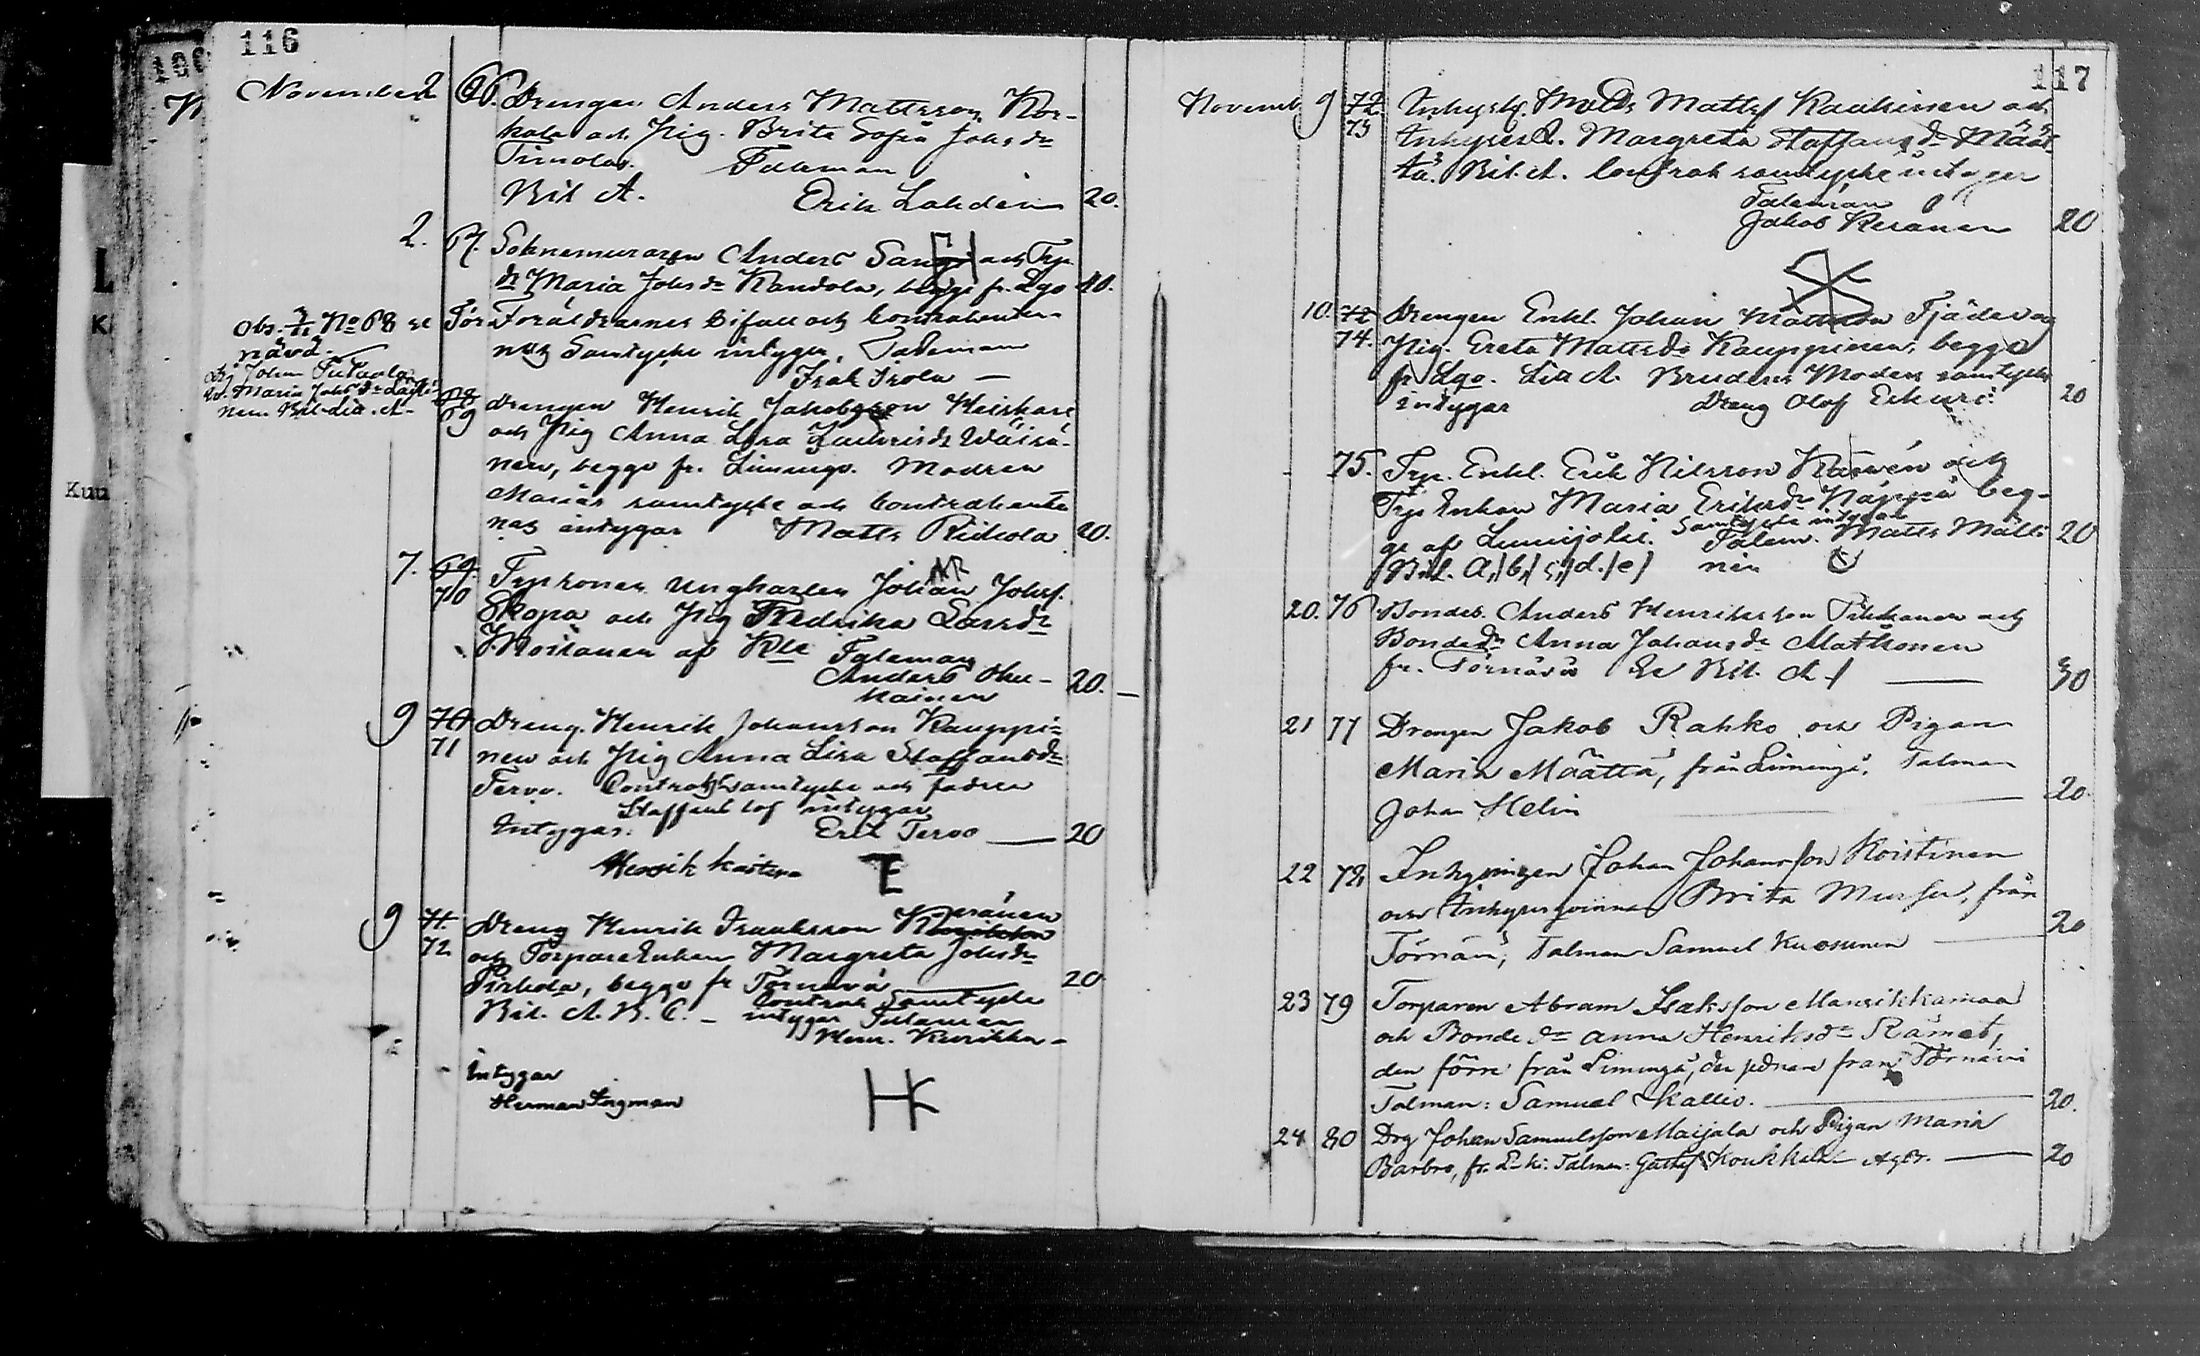 116
November 2 66. Drengen Anders Mattsson Kor-
kala och Pig. Brita Sofia Johsdr
Timola. Taleman
Bil A. Erik Lahden 20.
2. 67. Anders och Trp
dr Maria Johsdr Kandola, begge fr. Lgo 40.
Föräldrarnes bifall och Contrahenter-
nas Samtycke intygar, Taleman
Isak Isola —
Obs. No 68 se
nävd.
Johan
Maria Johsdr
Bil Litt. A
68
69 Drengen Henrik Jakobsson Keiskari
och Pig Anna Lisa Zachrisdr Wäisä-
nen, begge fr. Limingo. Modren
Marias samtycke och Contrahenter
nas intygar Matts Riekola 20.
7. 69.
70 Ungkarlen Johan Johss.
Skopa och Pig Fredrika Larsdr
Moilanen af Kle Taleman
Anders Oku-
kainen 20. —
9 70
71 Dreng. Henrik Johansson Kauppi-
nen och Pig Anna Lisa Staffansdr
Tervo. Contrah samtycke och fadren
Staffans lof intygar
Intygar: Erik Tervo — 20
Henrik
9 71.
72 Dreng Henrik Isaaksson
och Torpare Enkan Margreta Johsdr
Pirkola, begge fr Törnävä 20
Bil. A. B. C. — Contrah Samtycke
intygar Taleman
Henr. Kurikka —
Intygar
Herman Ingman HK
117
Novemb. 9 72
73 Inhyss. Matts Mattss Kaukinen och
Inhysesd. Margreta Staffansdr Määt-
tä. Bil. A. Contrah samtycke intygar
Taleman
Jakob Keränen 20
10. 72
74. Drengen Enkl. Johan Mattsson Fjäder og
Pig. Greta Mattsdr Kauppinen, begge
fr Lgo. Litt A. Brudens Moders samtycke
intygar Dreng Olof Eskuri 20
75. Trp. Enkl. Erik Nilsson och
Trp Enkan Maria Eriksdr Näppä beg-
ge af Lumijoki. Samtycke intygar
Talem. Matts Mäli-
nen 20
Bil. a,/ b,/ c,/ d./ e/
20. 76 Bondes. Anders Henriksson Pikkanen och
Bondedr Anna Johansdr Matkonen
fr. Törnävä Se Bil. A-/ — 30
21 77 Drängen Jakob Rahko och Pigan
Maria Määttä, från Limingå, Talman
Johan Helin — 20
22 78, Inhysingen Johan Johansson Koistinen
och Inhysesqvinnan Brita Mursu, från
Törnävä, Talman Samuel Kuosmanen — 20
23 79 Torparen Abram Isaksson Mansikkamaa
och Bonde dr Anna Henriksdr Rämet,
den förre från Limingå, den sednare från Törnävä
Talman: Samuel Skallio. — 20.
24 80 Drg Johan Samuelsson Maijala och Pigan Maria
Barbro, fr. L-ki: Talman: Gustaf Koukkari — 20